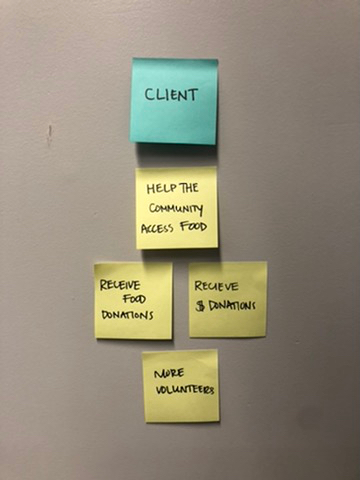 CLIENT
HELP THE
COMMUNITY
ACCESS FOOD
RECEIVE
FOOD
DONATIONS
RECIEVE
$ DONATIONS
MORE
VOLUNTEERS